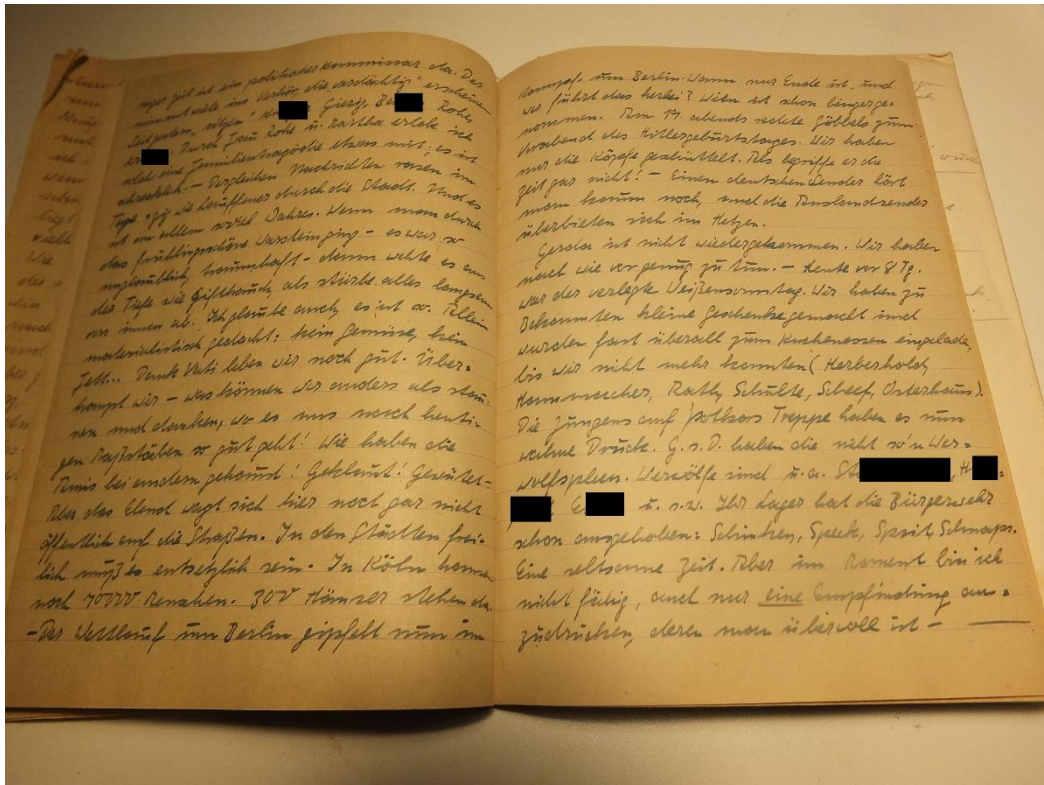 niger Zeit ist ein politischer Kommissar da. Der
nimmt viele ins Verhör, die „verdächtig" erscheinen
Seit gestern sitzen Giersig, Be Rohe,
Kr. Durch Frau Rohe u. Martha erlebe ich
also eine Familientragödie etwas mit; es ist
schrecklich. – Dergleichen Nachrichten rasen im
Tage wie Lauffeuer durch die Stadt. Und es
ist an allem soviel Wahres. Wenn man durch
das frühlingsschöne Warstein ging – es war so
unglaublich, traumhaft – dann wehte es aus
der Tiefe wie Gifthauch, als stürbe alles langsam
von innen ab. Ich glaube auch, es ist so. Allein
materialistisch gedacht: kein Gemüse, kein
Fett... Dank Vati leben wir noch gut. Über-
haupt wir – was können wir anders als stau-
nen und danken, wo es uns nach heuti-
gen Maßstäben so gut geht! Wie haben die
Amis bei andern gehaust! Geklaut! Gewütet –
Aber das Elend wagt sich hier noch gar nicht
öffentlich auf die Straßen. In den Städten frei-
lich muß es entsetzlich sein. In Köln hausen
noch 70000 Menschen. 300 Häuser stehen da.
– Der Wettlauf um Berlin gipfelt nun im
Kampf um Berlin. Wann nur Ende ist, und
wer führt das herbei? Wien ist schon länger ge-
nommen. Am 19. abends redete Göbbels zum
Vorabend des Hitlergeburtstages. Wir haben
nur die Köpfe geschüttelt. Als begriffe er die
Zeit gar nicht! – Einen deutschen Sender hört
man kaum noch, und die Auslandsender
überbieten sich im Hetzen.
Gerda ist nicht wiedergekommen. Wir haben
nach wie vor genug zu tun. – Heute vor 8 Tg.
war der verlegte Weißensonntag. Wir haben zu
Bekannten kleine Geschenke gemacht und
wurden fast überall zum Kuchenessen eingelade,
bis wir nicht mehr konnten (Herberhold,
Hammacher, Rath, Schulte, Scheef, Osterhaus).
Die Jungens auf Treppe haben es nun
wahne Druck. G. s. D. haben die nicht so'n Wer-
wolfspleen. Werwölfe sind u. a. St , H .
E u. s. w. Ihr Lager hat die Bürgerwehr
schon ausgehoben: Schinken, Speck, Sprit, Schnaps.
Eine seltsame Zeit. Aber im Moment bin ich
nicht fähig, auch nur eine Empfindung aus-
zudrücken, deren man übervoll ist –